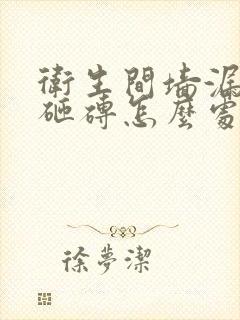 衛生間墻漏
砸磚怎麼處
徐夢潔